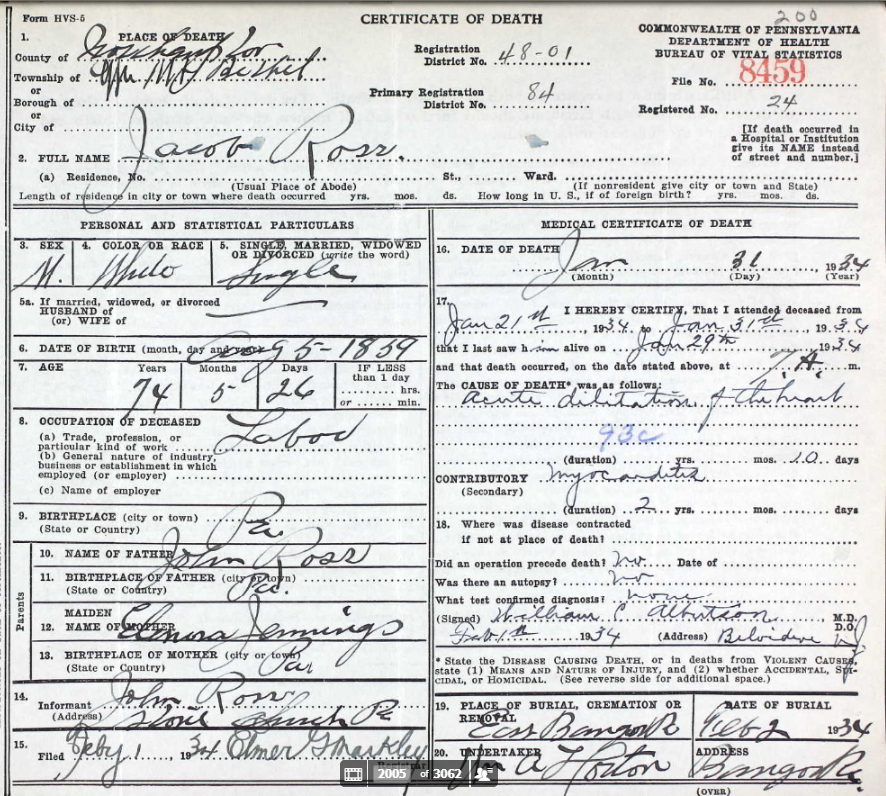 Form HVS-5
CERTIFICATE OF DEATH
200
COMMONWEALTH OF PENNSYLVANIA
DEPARTMENT OF HEALTH
BUREAU OF VITAL STATISTICS
1. PLACE OF DEATH
County of Northampton
Township of Mt Bethel
or
Borough of
or
City of
Registration District No. 48-01
Primary Registration District No. 84
File No. 8459
Registered No. 24
[If death occurred in a Hospital or Institution give its NAME instead of street and number.]
2. FULL NAME Jacob Ross.
(a) Residence, No. St., Ward.
(Usual Place of Abode) (If nonresident give city or town and State)
Length of residence in city or town where death occurred yrs. mos. ds. How long in U. S., if of foreign birth? yrs. mos. ds.
PERSONAL AND STATISTICAL PARTICULARS
3. SEX M.
4. COLOR OR RACE White
5. SINGLE, MARRIED, WIDOWED OR DIVORCED (write the word) Single
5a. If married, widowed, or divorced
HUSBAND of
(or) WIFE of
6. DATE OF BIRTH (month, day and year) Aug 5-1859
7. AGE Years Months Days IF LESS than 1 day
74 5 26 hrs. or min.
8. OCCUPATION OF DECEASED
(a) Trade, profession, or particular kind of work Labor
(b) General nature of industry, business or establishment in which employed (or employer)
(c) Name of employer
9. BIRTHPLACE (city or town)
(State or Country) Pa
Parents
10. NAME OF FATHER John Ross
11. BIRTHPLACE OF FATHER (city or town)
(State or Country) Pa.
12. MAIDEN NAME OF MOTHER Elenora Jennings
13. BIRTHPLACE OF MOTHER (city or town)
(State or Country) Pa
14. Informant John Ross
(Address) Stone Church Pa
15. Filed Feby 1 1934 Elmer G Markley
Registrar
MEDICAL CERTIFICATE OF DEATH
16. DATE OF DEATH Jan 31 1934
(Month) (Day) (Year)
17. I HEREBY CERTIFY, That I attended deceased from
Jan 21st, 1934 to Jan 31st, 1934
that I last saw him alive on Jan 29th 1934
and that death occurred, on the date stated above, at 7 A. m.
The CAUSE OF DEATH* was as follows:
Acute dilitation of the heart
93c
(duration) yrs. mos. 10 days
CONTRIBUTORY Myocarditis
(Secondary)
(duration) 2 yrs. mos. days
18. Where was disease contracted
if not at place of death?
Did an operation precede death? No Date of
Was there an autopsy? No
What test confirmed diagnosis? none
(Signed) William C Albertson M.D. D.O.
Feb 1st 1934 (Address) Belvidere NJ
* State the DISEASE CAUSING DEATH, or in deaths from VIOLENT CAUSES, state (1) MEANS AND NATURE OF INJURY, and (2) whether ACCIDENTAL, SUICIDAL, or HOMICIDAL. (See reverse side for additional space.)
19. PLACE OF BURIAL, CREMATION OR REMOVAL East Bangor Pa
DATE OF BURIAL Feb 2 1934
20. UNDERTAKER A Horton
ADDRESS Bangor Pa.
(OVER)
2005 of 3062